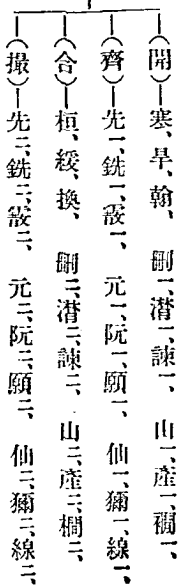 (開)—寒、旱、翰、 刪一、潸一、諫一、 山一、產一、襉一、
(齊)—先一、銑一、霰一、 元一、阮一、願一、 仙一、獮一、線一、
(合)—桓、緩、換、 刪二、潸二、諫二、 山二、產二、襉二、
(撮)—先二、銑二、霰二、 元二、阮二、願二、 仙二、獮二、線二、